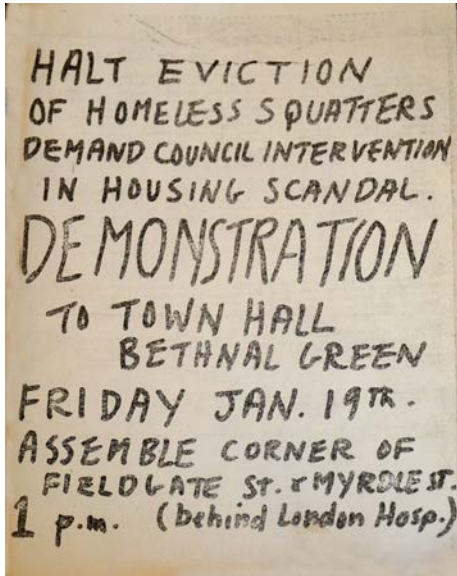 HALT EVICTION
OF HOMELESS SQUATTERS
DEMAND COUNCIL INTERVENTION
IN HOUSING SCANDAL.
DEMONSTRATION
TO TOWN HALL
BETHNAL GREEN
FRIDAY JAN. 19TH.
ASSEMBLE CORNER OF
FIELDGATE ST. & MYRDLE ST.
1 p.m. (behind London Hosp.)